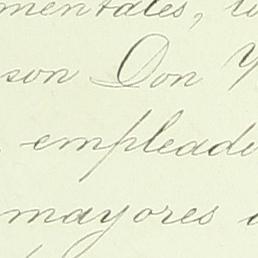 mentales,
son Don
empleado
mayores